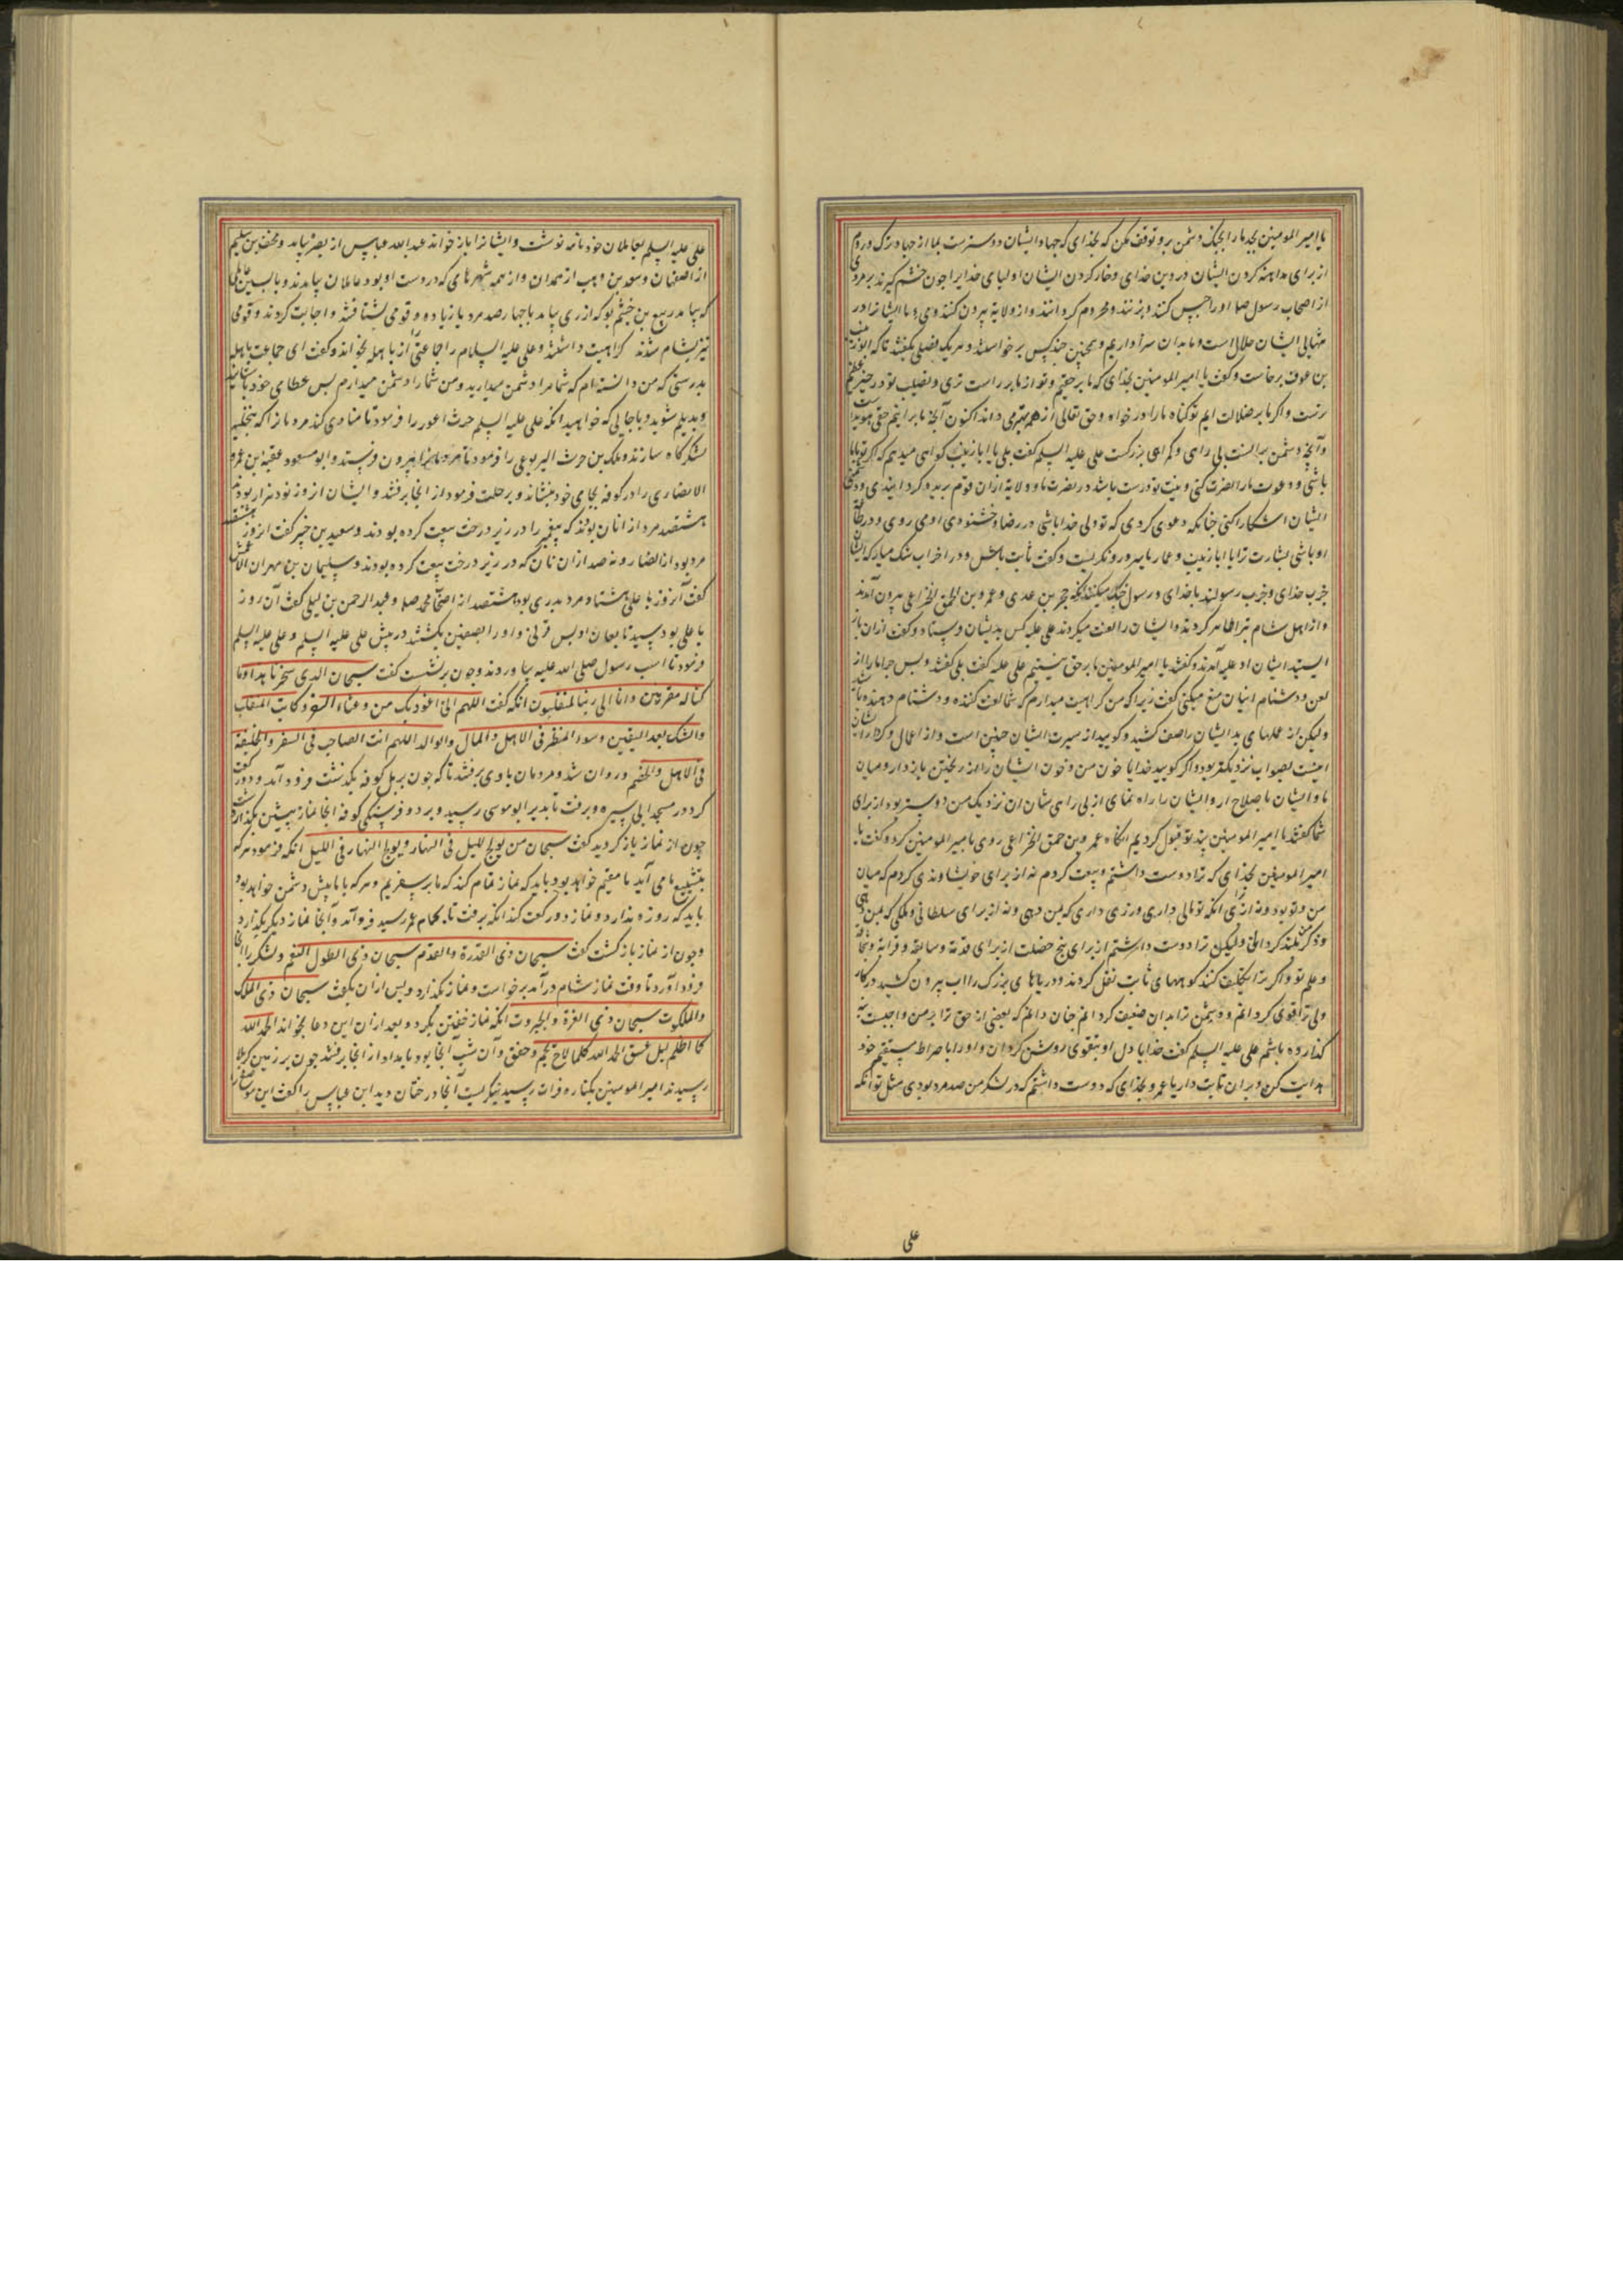 یا امیر المومنین بجد ما را بجنک دشمن بر و توقف مکن که بخدای که جهاد ایشان دوسترست بما از جهاد ترک و روم
از برای مداهنه کردن ایشان در دین خدای و خار کردن ایشان اولیای خدایرا چون خشم کیرند بر مردی
از اصحاب رسول صلعم او را حبس کنند و بزنند و محروم کردانند و از ولایه بیرون کنند و می ما ایشانرا در
مالی ایشان حلال است و ما بدان سزاواریم و همچنین چند کس برخواستند و هر یک فصلی بکفتند تا که ابو زینب
بن عوف برخاست و کفت یا امیر المومنین بخدای که ما بر حقیم و تو از ما بر راست تری و نصیب تو در خیر عظیم
ترست و اکر ما بر ضلالت ایم تو کناه ما را در خواه و حق تعالی از همه بهتر می داند اکنون آنچه ما برانیم حقی هویداست
و آنچه دشمن بر انست بی راهی و کمراهی بزرکست علی علیه السلم کفت بلی یا ابا زینب کواهی میدهم که اکر تو با ما
باشی و دعوت ما را نصرت کنی و نیت تو درست باشد در نصرت ما و ولایه ازان قوم بریده کردانیدی و دشمنی
ایشان اشکارا کنی چنانکه دعوی کردی که تو ولی خدا باشی در رضا و خشنودی او می روی و در طاعت
او باشی بشارت ترا یا ابا زینب و عمار یاسر درو نکریست و کفت ثابت باش و در احزاب شک میار که ایشان
حزب خدای و حزب رسولند با خدای و رسول جنک میکنند انکه حجر بن عدی و عمرو بن الحمق الخزاعی بیرون آمدند
و از اهل شام تبرا ظاهر کردند و ایشان را لعنت میکردند علی علیه کس بدیشان فرستاد و کفت ازان باز
ایستید ایشان او علیه آمدند و کفتند یا امیر المومنین ما بر حق نیستیم علی علیه کفت بلی کفتند پس چرا ما را از
لعن و دشنام ایشان منع میکنی کفت زیرا که من کراهیت میدارم که شما لعنت کننده و دشنام دهنده باشید
و لیکن از عملهای بد ایشان را صفت کنید و کویید از سیرت ایشان چنین است و از اعمال و کردار ایشان
اینست بصواب نزدیکتر بود و اکر کویید خدایا خون من و خون ایشان را از ریختن باز دار و میان
ما و ایشان باصلاح ار و ایشان را راه نمای از بی راهی شان ان نزدیک من دوستر بود از برای
شما کفتند یا امیر المومنین پند تو قبول کردیم انکاه عمرو بن حمق الخزاعی روی بامیر المومنین کرد و کفت یا
امیر المومنین بخدای که ترا دوست داشتم و بیعت کردم نه از برای خویشاوندی کردم که میان
من و تو بود و نه از برای انکه تو مالی داری و زری داری که بمن دهی و نه از برای سلطانی و ملکی که بمن دهی
و ذکر من بلند کردانی و لیکن ترا دوست داشتم از برای پنج خصلت از برای قدمة و سابقه و قرابة و شجاعة
و علم تو و اکر مرا تکلیف کنند کوههای ثابت نقل کردند و دریاهای بزرک را اب بیرون کشید در کار
ولی ترا قوی کردانم و دشمن ترا بدان ضعیف کردانم چنان دانم که بعضی از حق ترا بر من واجبست
کذارده باشم علی علیه السلم کفت خدایا دل او بتقوی روشن کردان و او را با صراط مستقیم خود
هدایت کن و بر ان ثابت دار یا عمرو بخدای که دوست داشتم که در لشکر من صد مرد بودی مثل تو انکه
علی
علی علیه السلم بعاملان خود نامه نوشت و ایشانرا باز خواند عبد الله عباس از بصره بیامد و مخنف بن سلیم
از اصفهان و سعد بن وهب از همدان و از همه شهرهای که در دست او بود عاملان بیامدند و باسپین عاملی
که بیامد ربیع بن خیثم بود که از ری بیامد با چهار صد مرد یا زیاده و قومی بشتافتند و اجابت کردند و قومی
نیز بشام شدند کراهیت داشتند و علی علیه السلام را جماعتی از باهل بخواند و کفت ای جماعت باهله
بدرستی که من دانسته ام که شما مرا دشمن میدارید و من شما را دشمن میدارم بس عطای خود بستانید
و بدیلم شوید و یا جایی که خواهید انکه علی علیه السلم حرث اعور را فرمود تا منادی کند مردمان را که بنخلیه
لشکرکاه سازند و ملک بن حرث الیربوعی را فرمود تا مردمانرا بیرون فرستد و ابو مسعود عقبة بن عمرو
الانصاری را در کوفه بجای خود بنشاند و برحلت فرمود از انجا برفتند و ایشان از نود هزار بودند
هشتصد مرد از انان بودند که پیغمبر را در زیر درخت بیعت کرده بودند و سعید بن جبیر کفت انروز هشتصد
مرد بود از انصار و نه صد ازان نان که در زیر درخت بیعت کرده بودند و سلیمان بن مهران الاعمش
کفت آنروز با علی هشتاد مرد بدری بود هشتصد از اصحاب محمد صلعم و عبد الرحمن بن لیلی کفت آن روز
با علی بود سید تابعان اویس قرنی و او را بصفین بکشتند در پیش علی علیه السلم و علی علیه السلم
فرمود تا اسب رسول صلی الله علیه بیاوردند و چون برنشست کفت سبحان الذی سخر لنا هذا و ما
کنا له مقرنین و انا الی ربنا لمنقلبون انکه کفت اللهم انی اعوذ بک من وعثاء السفر و کابت المنقلب
و الشک بعد الیقین و سوء المنظر فی الاهل و المال و الوالد اللهم انت الصاحب فی السفر و الخلیفة
فی الاهل و الحضر و روان شد و مردمان با وی برفتند تا که چون بر پل کوفه بکذشت فرود آمد و دو رکعت
کرد در مسجد ابی سبره و برفت تا بدیر ابو موسی رسید و بر دو فرسنکی کوفه انجا نماز پیشین بکذارد
چون از نماز باز کردید کفت سبحان من یولج اللیل فی النهار و یولج النهار فی اللیل انکه فرمود هر که
بتشییع ما می آید یا مقیم خواهد بود باید که نماز تمام کند که ما بر سفریم و هر که با ما پیش دشمن خواهد بود
باید که روزه ندارد و نماز دو رکعت کند انکه برفت تا بحمام عمر رسید فرو آمد و آنجا نماز دیکر بکذارد
و چون از نماز باز کشت کفت سبحان ذی القدرة و العدم سبحان ذی الطول النعم و لشکر را انجا
فرود آورد تا وقت نماز شام درآمد برخواست و نماز بکذارد و پس ازان بکفت سبحان ذی الملک
و الملکوت سبحان ذی العزة و الجبروت انکه نماز خفتن بکرد و بعد ازان این دعا بخواند الحمد الله
کما اظلم لیل غسق الحمد الله کلما لاح نجم و خفق و آن شب آنجا بود بامداد از انجا برفتند چون بر زمین کربلا
رسیدند امیر المومنین بکناره فرات رسید بنکریست آنجا درختان دید ابن عباس را کفت این موضع